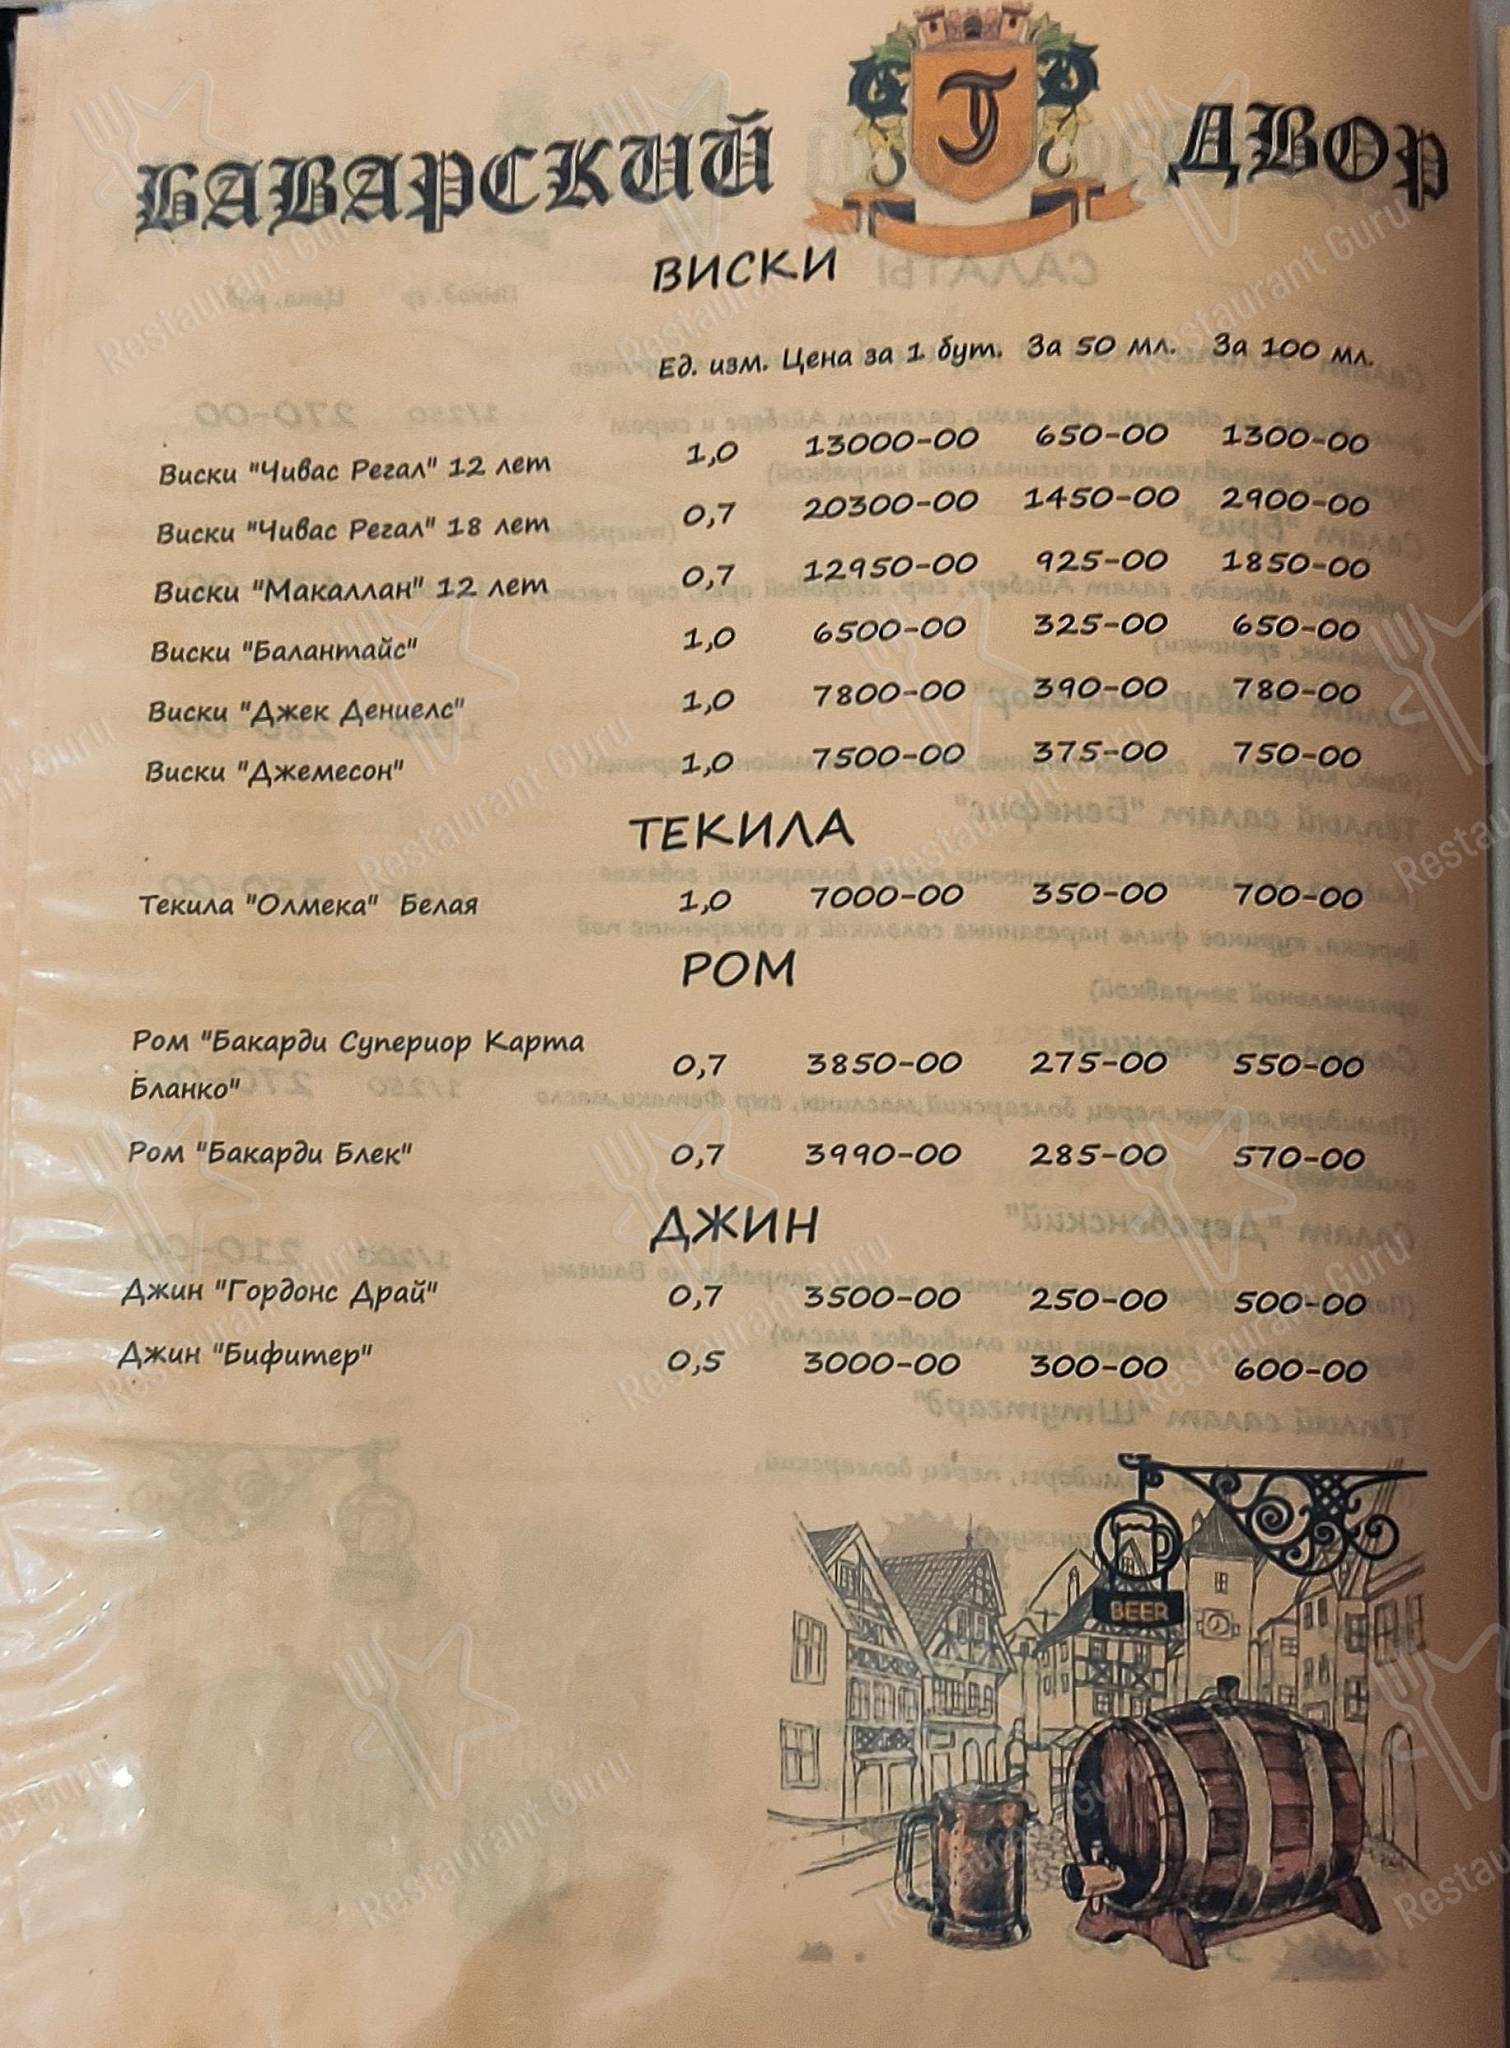 БАВАРСКИЙ ДВОР
ВИСКИ
Ед. изм. Цена за 1 бут. За 50 мл. За 100 мл.
Виски "Чивас Регал" 12 лет 1,0 13000-00 650-00 1300-00
Виски "Чивас Регал" 18 лет 0,7 20300-00 1450-00 2900-00
Виски "Макаллан" 12 лет 0,7 12950-00 925-00 1850-00
Виски "Балантайс" 1,0 6500-00 325-00 650-00
Виски "Джек Дениелс" 1,0 7800-00 390-00 780-00
Виски "Джемесон" 1,0 7500-00 375-00 750-00
ТЕКИЛА
Текила "Олмека" Белая 1,0 7000-00 350-00 700-00
РОМ
Ром "Бакарди Супериор Карта
Бланко" 0,7 3850-00 275-00 550-00
Ром "Бакарди Блек" 0,7 3990-00 285-00 570-00
ДЖИН
Джин "Гордонс Драй" 0,7 3500-00 250-00 500-00
Джин "Бифитер" 0,5 3000-00 300-00 600-00
BEER
Restaurant Guru